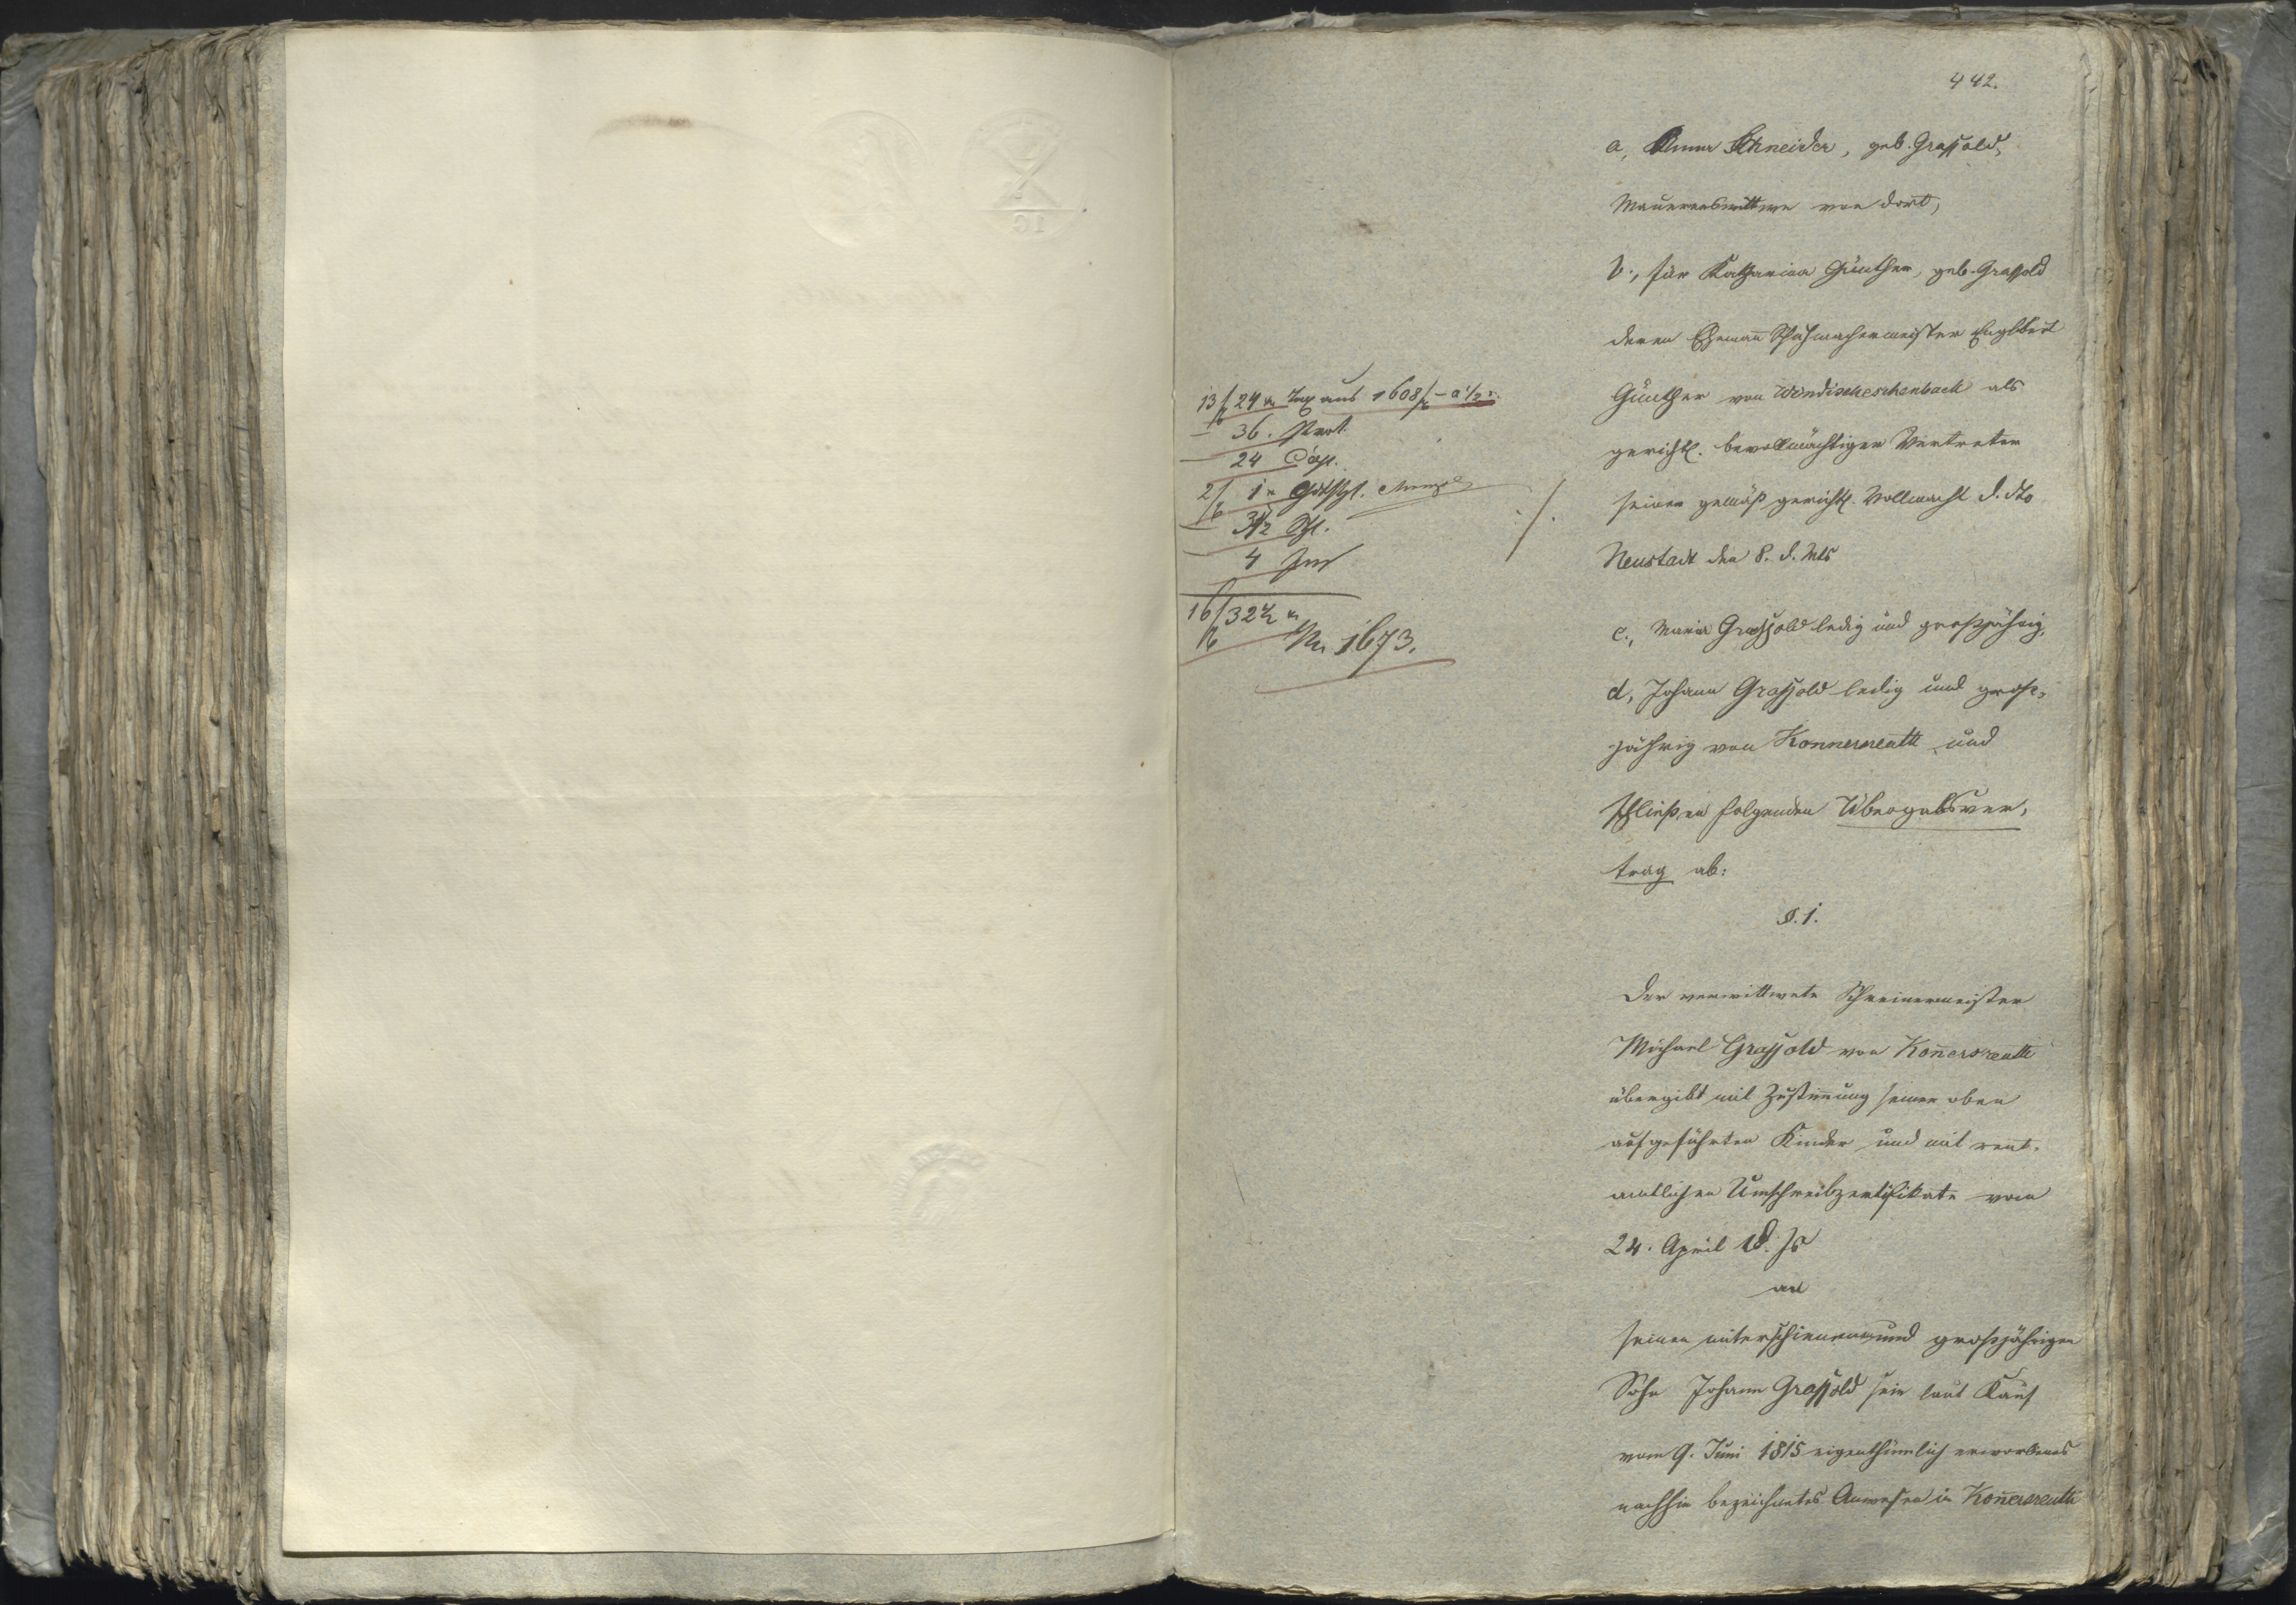 442.
a, Anna Schneider, geb. Graßold,
Maurerswittwe von dort,
b., für Katharina Günther, geb. Graßold
deren Ehemañ Schuhmachermeister Englbert
Günther von Windischeschenbach als
gerichtl. bevollmächtigter Vertreter
seiner gemäß gerichtl. Vollmacht d. dto
Neustadt den 8. d. Mts
c., Maria Graßold ledig und großjährig,
d, Johann Graßold ledig und groß-
jährig von Konnersreuth und
schließen folgenden Übergabsver-
trag ab:
§. 1.
Der verwittwete Schreinermeister
Michael Graßold von Koñersreuth
übergibt mit Zustimmung seiner oben
aufgeführten Kinder und mit rent-
amtlichen Umschreibzertifikate vom
24. April d. Js
an
seinen miterschienenen und großjährigen
Sohn Johann Graßold sein laut Kauf
vom 9. Juni 1815 eigenthümlich erworbenes
nachhin bezeichnetes Anwesen in Koñersreuth
13 f 24 kr Tax aus 1608 f – a ½
– 36. Prot.
– 24 Cop.
2 f 1 kr
– 3½
– 4
16 f 32½ kr
Nr. 1673.